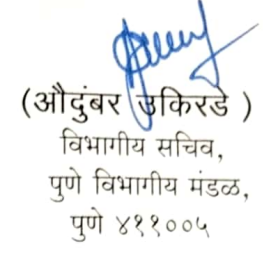 (औदुंबर उकिरडे )
विभागीय सचिव,
पुणे विभागीय मंडळ,
पुणे ४११००५